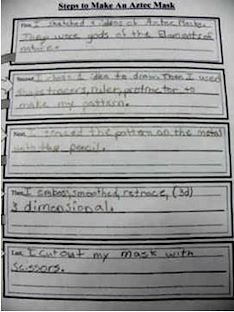 Steps to Make An Aztec Mask
First I sketched 3 ideas of Aztec Masks.
They were gods of the Elements of
nature.
Second I chose 1 idea to draw. Then I used
shape tracers, ruler, protractor to
make my pattern.
Next I traced the pattern on the metal
with the pencil.
Then I emboss, smoothed, retrace, (3d)
3 dimensional.
Last I cut out my mask with
scissors.